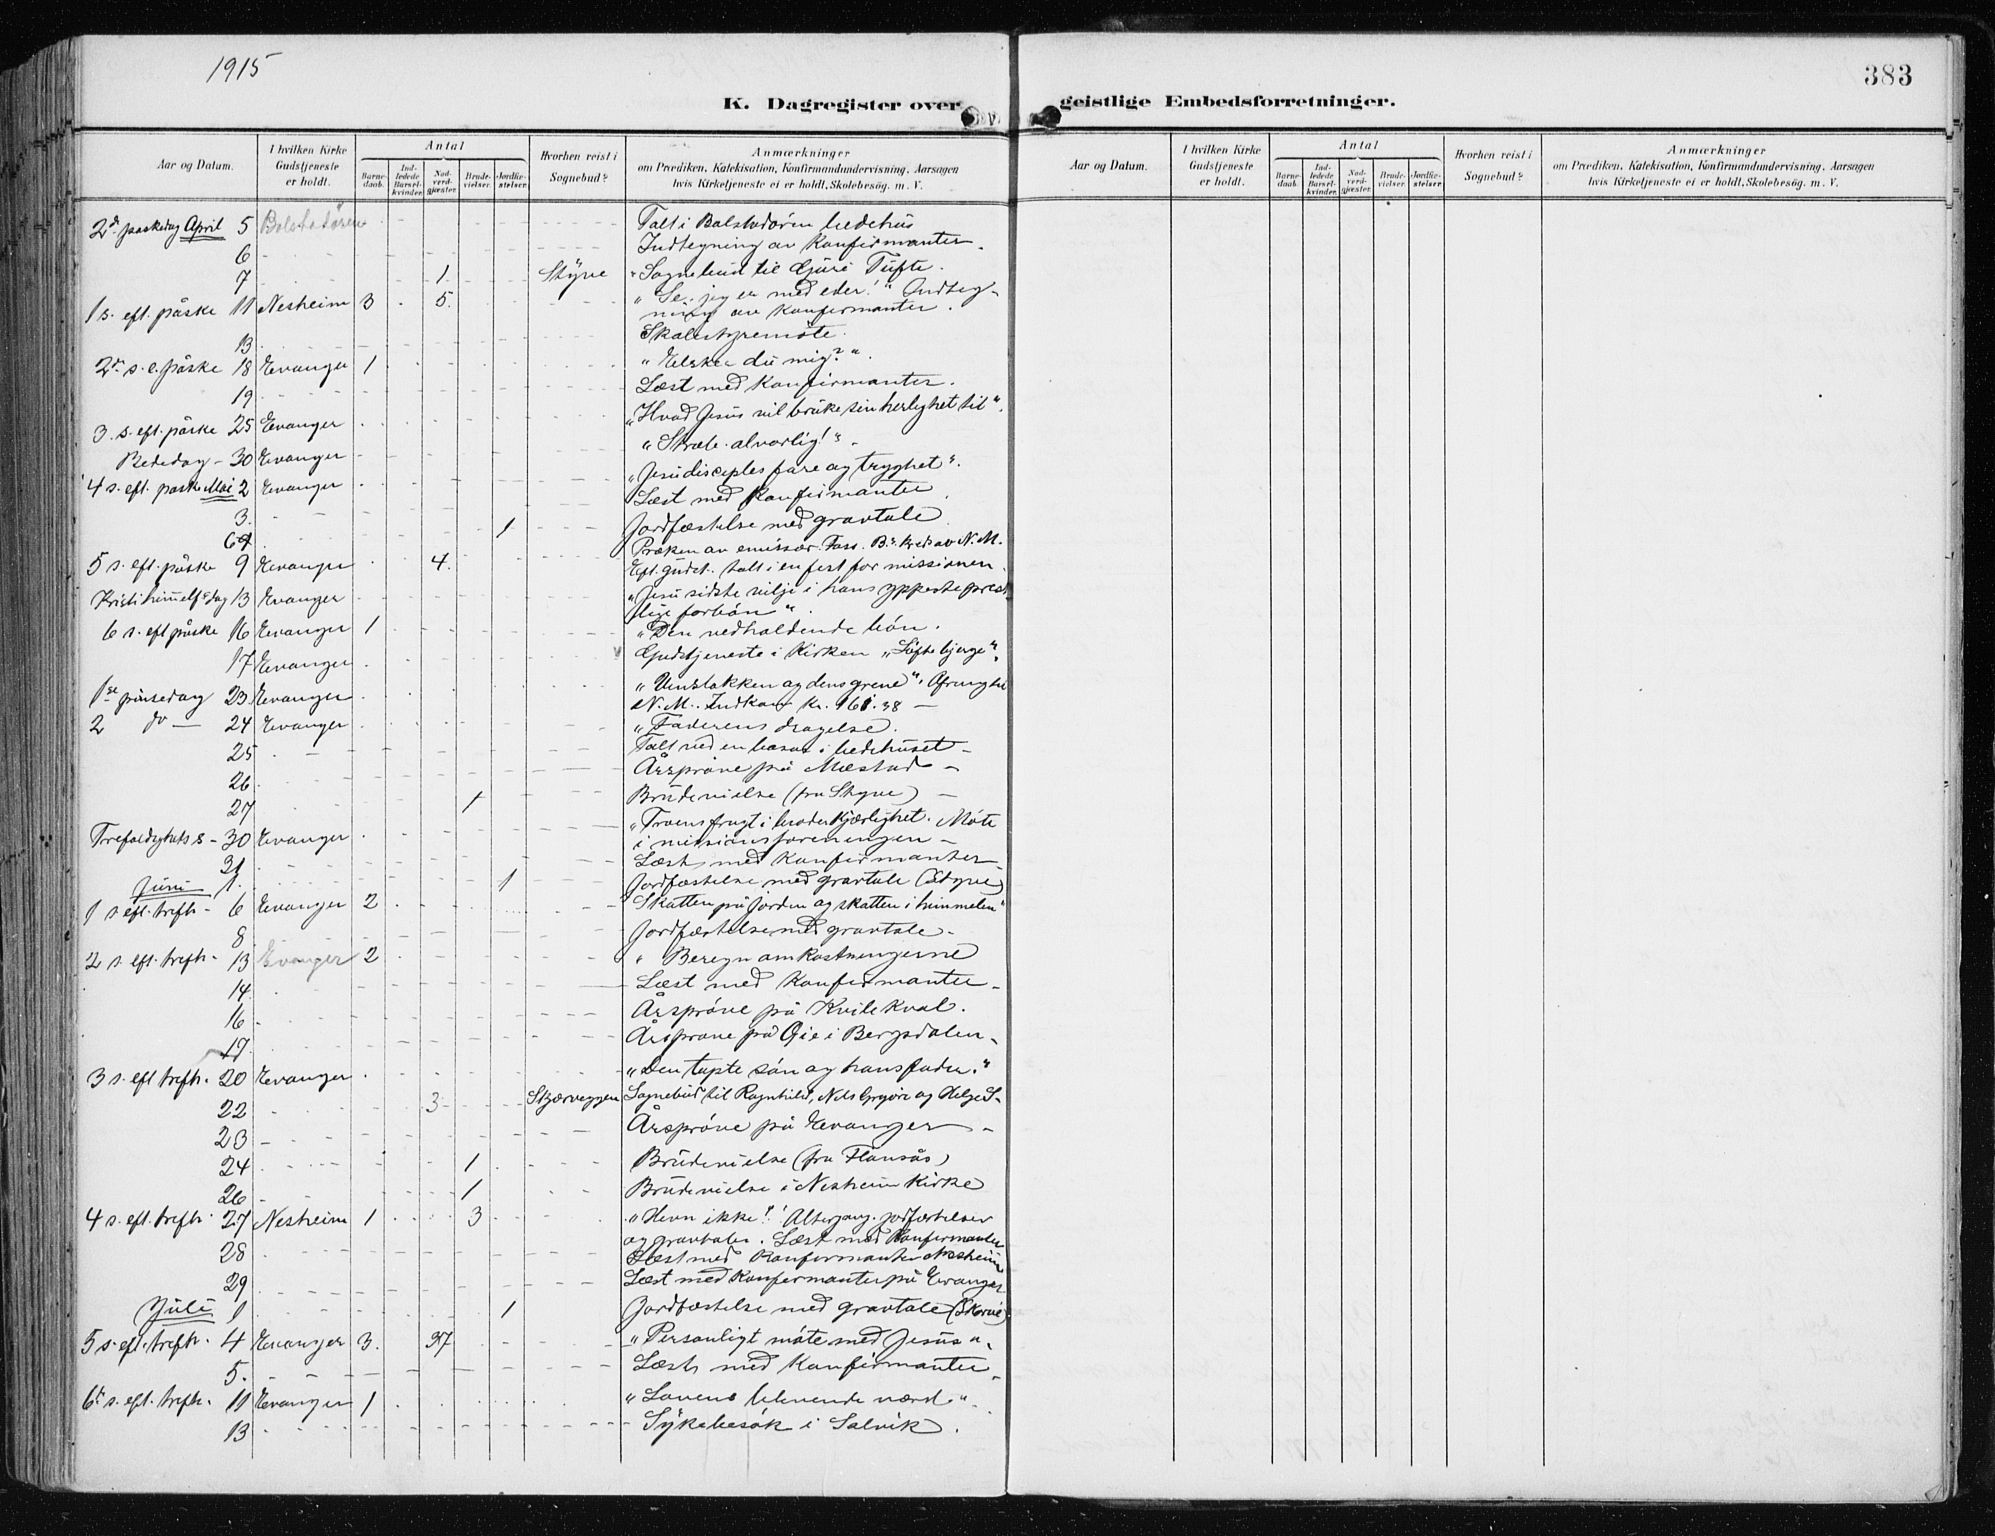 1915
383
K. Dagregister over geistlige Embedsforretninger.
Aar og Datum. I hvilken Kirke Gudstjeneste er holdt. Antal Barnedaab. Indledede Barselkvinder. Nadverdgjæster. Brudevielser. Jordfæstelser. Hvorhen reist i Sognebud? Anmærkninger om Prædiken, Katekisation, Konfirmandundervisning, Aarsagen hvis Kirketjeneste ei er holdt, Skolebesøg. m. V.
Aar og Datum. I hvilken Kirke Gudstjeneste er holdt. Antal Barnedaab. Indledede Barselkvinder. Nadverdgjæster. Brudevielser. Jordfæstelser. Hvorhen reist i Sognebud? Anmærkninger om Prædiken, Katekisation, Konfirmandundervisning, Aarsagen hvis Kirketjeneste ei er holdt, Skolebesøg. m. V.
2d. paskedag April 5 Bolstadøren Talt i Bolstadøren bedehus
6 Indtegning av Konfirmanter.
7 1 Styve Sognebud til Guri Tufte.
1 s. eft. påske 11 Nesheim 3 5 "Se, jeg er med eder!" Indteg-
ning av Konfirmanter.
13 Skolestyremöte
2den s. e. påske 18 Evanger 1 "Elsker du mig?".
19 Læst med Konfirmanter.
3. s. eft. påske 25 Evanger "Hvad Jesus vil bruke sin herlighet til".
Bededag - 30 Evanger "Stræb alvorlig!".
4 s. eft. paske Mai 2 Evanger "Jesu disciples fare og tryghet".
3. Læst med Konfirmanter
6 1 Jordfæstelse med gravtale
5 s. eft. påske 9 Evanger 4. Præken av emissær Foss. B.s Kreds av N.M.
Eft. gudst. talt i en fest for missionen.
Kristi himelf.dag 13 Evanger "Jesu sidste vilje i hans ypperstepreste-
lige forbön".
6 s. eft påske 16 Evanger 1 "Den vedholdende bön.
17 Evanger Gudstjeneste i Kirken "Löftebjerge".
1ste pinsedag 23 Evanger "Vinstokken og dens grene".
N.M. Indkom Kr. 161.38 -
2 do - 24 Evanger "Faderens dragelse.
25 Talt ved en basar i bedehuset -
26 Årspröve på Mæstad -
27 1 Brudevielse (fra Styve) -
Trefoldighets s - 30 Evanger "Troens frugt i broderkjærlighet. Möte
i missionsforeningen -
31 Læst med Konfirmanter
Juni 1. 1 Jordfæstelse med gravtale (Styve)
1 s eft. trefh - 6 Evanger 2 Skatten på jorden og skatten i himmelen"
8 Jordfæstelse med gravtale -
2 s. eft. trefh - 13 Evanger 2 " Beregn omkostningerne
14 Læst med Konfirmanter -
16 Årspröve på Kvilekval.
17 Årspröve på Öie i Bergsdalen -
3 s. eft trefh. 20 Evanger "Den tapte sön og hans fader."
22 3 Skjærveggen Sognebud til Ragnhild, Nils Gregöri og Helge S-
23 Årspröve på Evanger -
24 1 Brudevielse (fra Flansås)
26 1 Brudevielse i Nesheim Kirke
4 s. eft. trefh. 27 Nesheim 1 3 "Hevn ikke!" Altergang. jordfæstelser
og gravtaler. Læst med Konfirmanter
28 Læst med Konfirmanter Nesheim
29 Læst med Konfirmanter på Evanger
Juli 1 1 Jordfæstelse med gravtale
5 s. eft. trefh. 4 Evanger 3. 37 "Personligt möte med Jesus".
5. Læst med Konfirmanter -
6te s. eft. trefh. 11 Evanger 1 "Lovens blivende værd".
13 Sykebesök i Salvik.